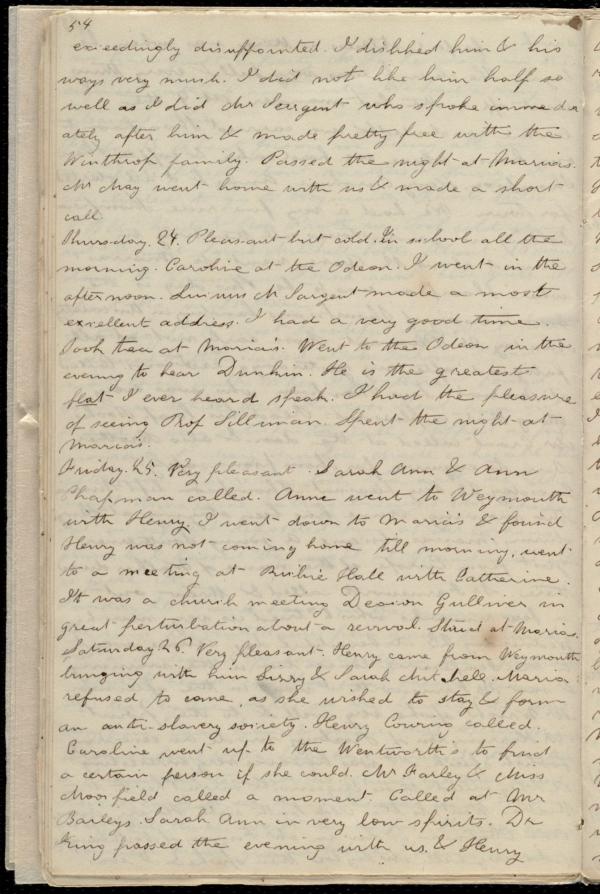 54
exceedingly disappointed. I disliked him & his
ways very much. I did not like him half so
well as I did Mr Seargent who spoke immedi
ately after him & made pretty free with the
Winthrop family. Passed the night at Maria's.
Mr May went home with us & made a short
call
Thursday. 24. Pleasant but cold. In school all the
morning. Caroline at the Odeon. I went in the
afternoon. Lucius M Sargent made a most
excellent address. I had a very good time.
Took tea at Maria's. Went to the Odeon in the
evening to hear Dunkin. He is the greatest
flat I ever heard speak. I had the pleasure
of seeing Prof Silliman. Spent the night at
Maria's.
Friday. 25. Very pleasant. Sarah Ann & Ann
Chapman called. Anne went to Weymouth
with Henry. I went down to Maria's & found
Henry was not coming home till morning, went
to a meeting at Hall with Catherine.
It was a church meeting Deacon Gulliver in
great perturbation about a revival. Staid at Maria's.
Saturday 26. Very pleasant. Henry came from Weymouth
bringing with him & Sarah Mitchell. Maria
refused to come, as she wished to stay & form
an anti-slavery society. Henry called.
Caroline went up to the Wentworth's to find
a certain person if she could. Mr Farley & Miss
called a moment. Called at Mr
Bayleys. Sarah Ann in very low spirits. Dr
King passed the evening with us. & Henry